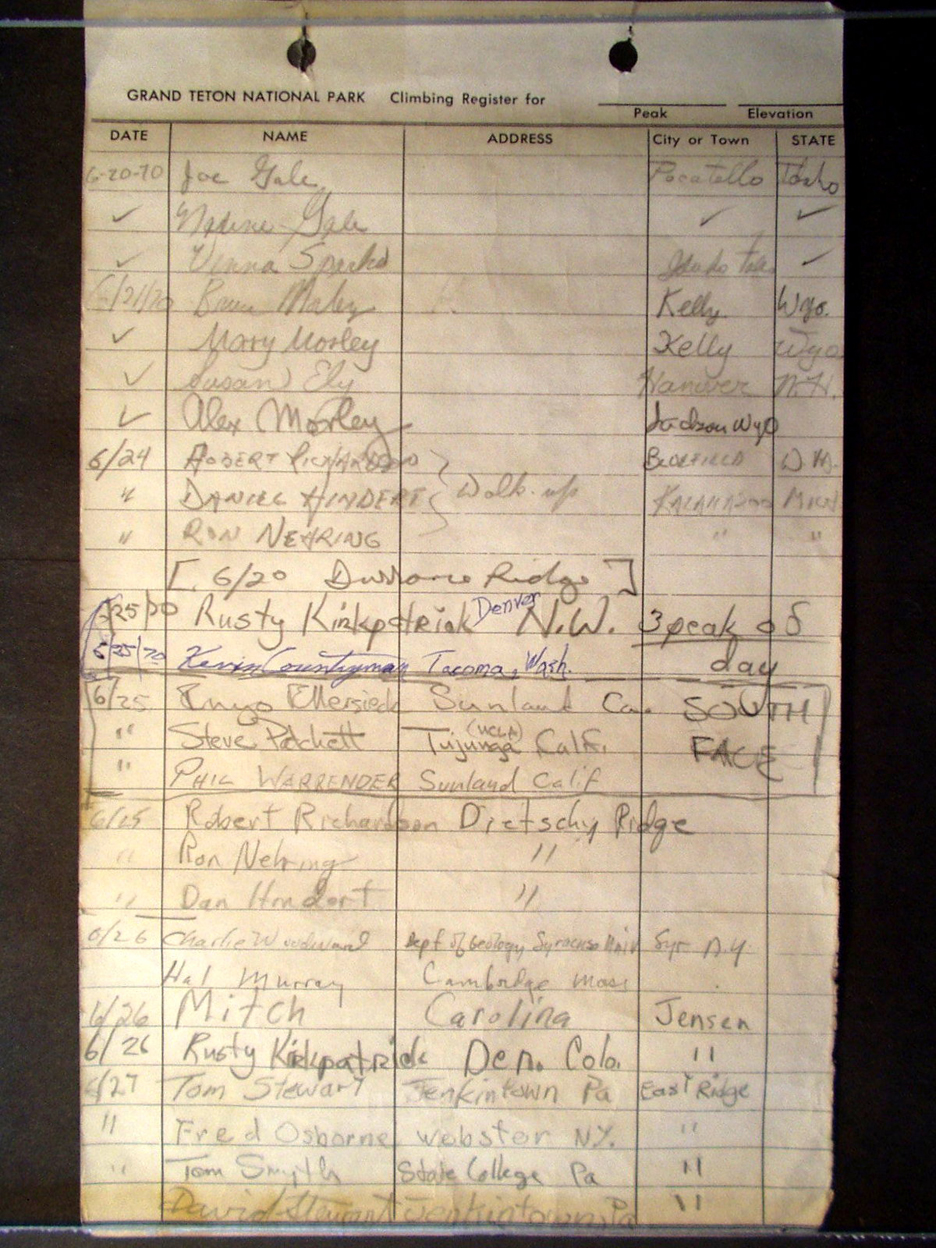 GRAND TETON NATIONAL PARK Climbing Register for
Peak Elevation
DATE NAME ADDRESS City or Town STATE
6-20-70 Joe Gale Pocatello Idaho
✓ Nadine Gale ✓ ✓
✓ Sparks Idaho ✓
6/21/70 Kelly Wyo.
✓ Mary Morley Kelly Wyo
✓ Susan Ely Hanover N.H.
✓ Alex Morley Jackson Wyo
6/24 ROBERT RICHARDSON
" DANIEL HINDERT } Walk-up KALAMAZOO Mich
" RON NEHRING " "
[ 6/20 Durrance Ridge ]
6/25/70 Rusty Kirkpatrick Denver N.W. 3 peak of
6/25/70 Kevin Countryman Tacoma, Wash. day
6/25 Ellersieck Sunland Ca. SOUTH
" Steve Tujunga (UCLA) Calif. FACE
" PHIL WARRENDER Sunland Calif
6/25 Robert Richardson Dietschy Ridge
" Ron Nehring "
" Dan Hindert "
6/26 Charlie Woodward Dept of Geology Syracuse Univ Syr N.Y.
Hal Murray Cambridge Mass
6/26 Mitch Carolina Jensen
6/26 Rusty Kirkpatrick Den. Colo. "
6/27 Tom Stewart Jenkintown Pa East Ridge
" Fred Osborne Webster N.Y. "
" Tom Smyth State College Pa "
David Stewart Jenkintown, Pa "